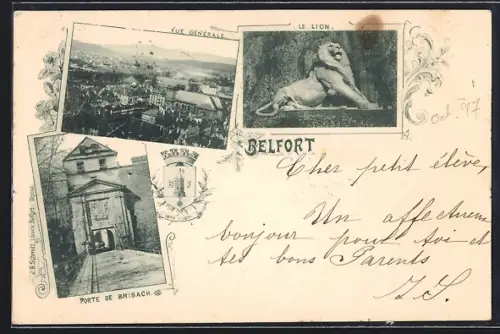 VUE GÉNÉRALE.
LE LION.
BELFORT
Oct. 97
Cher petit élève,
Un affectueux
bonjour pour toi et
tes bons Parents
B F
PORTE DE BRISACH.